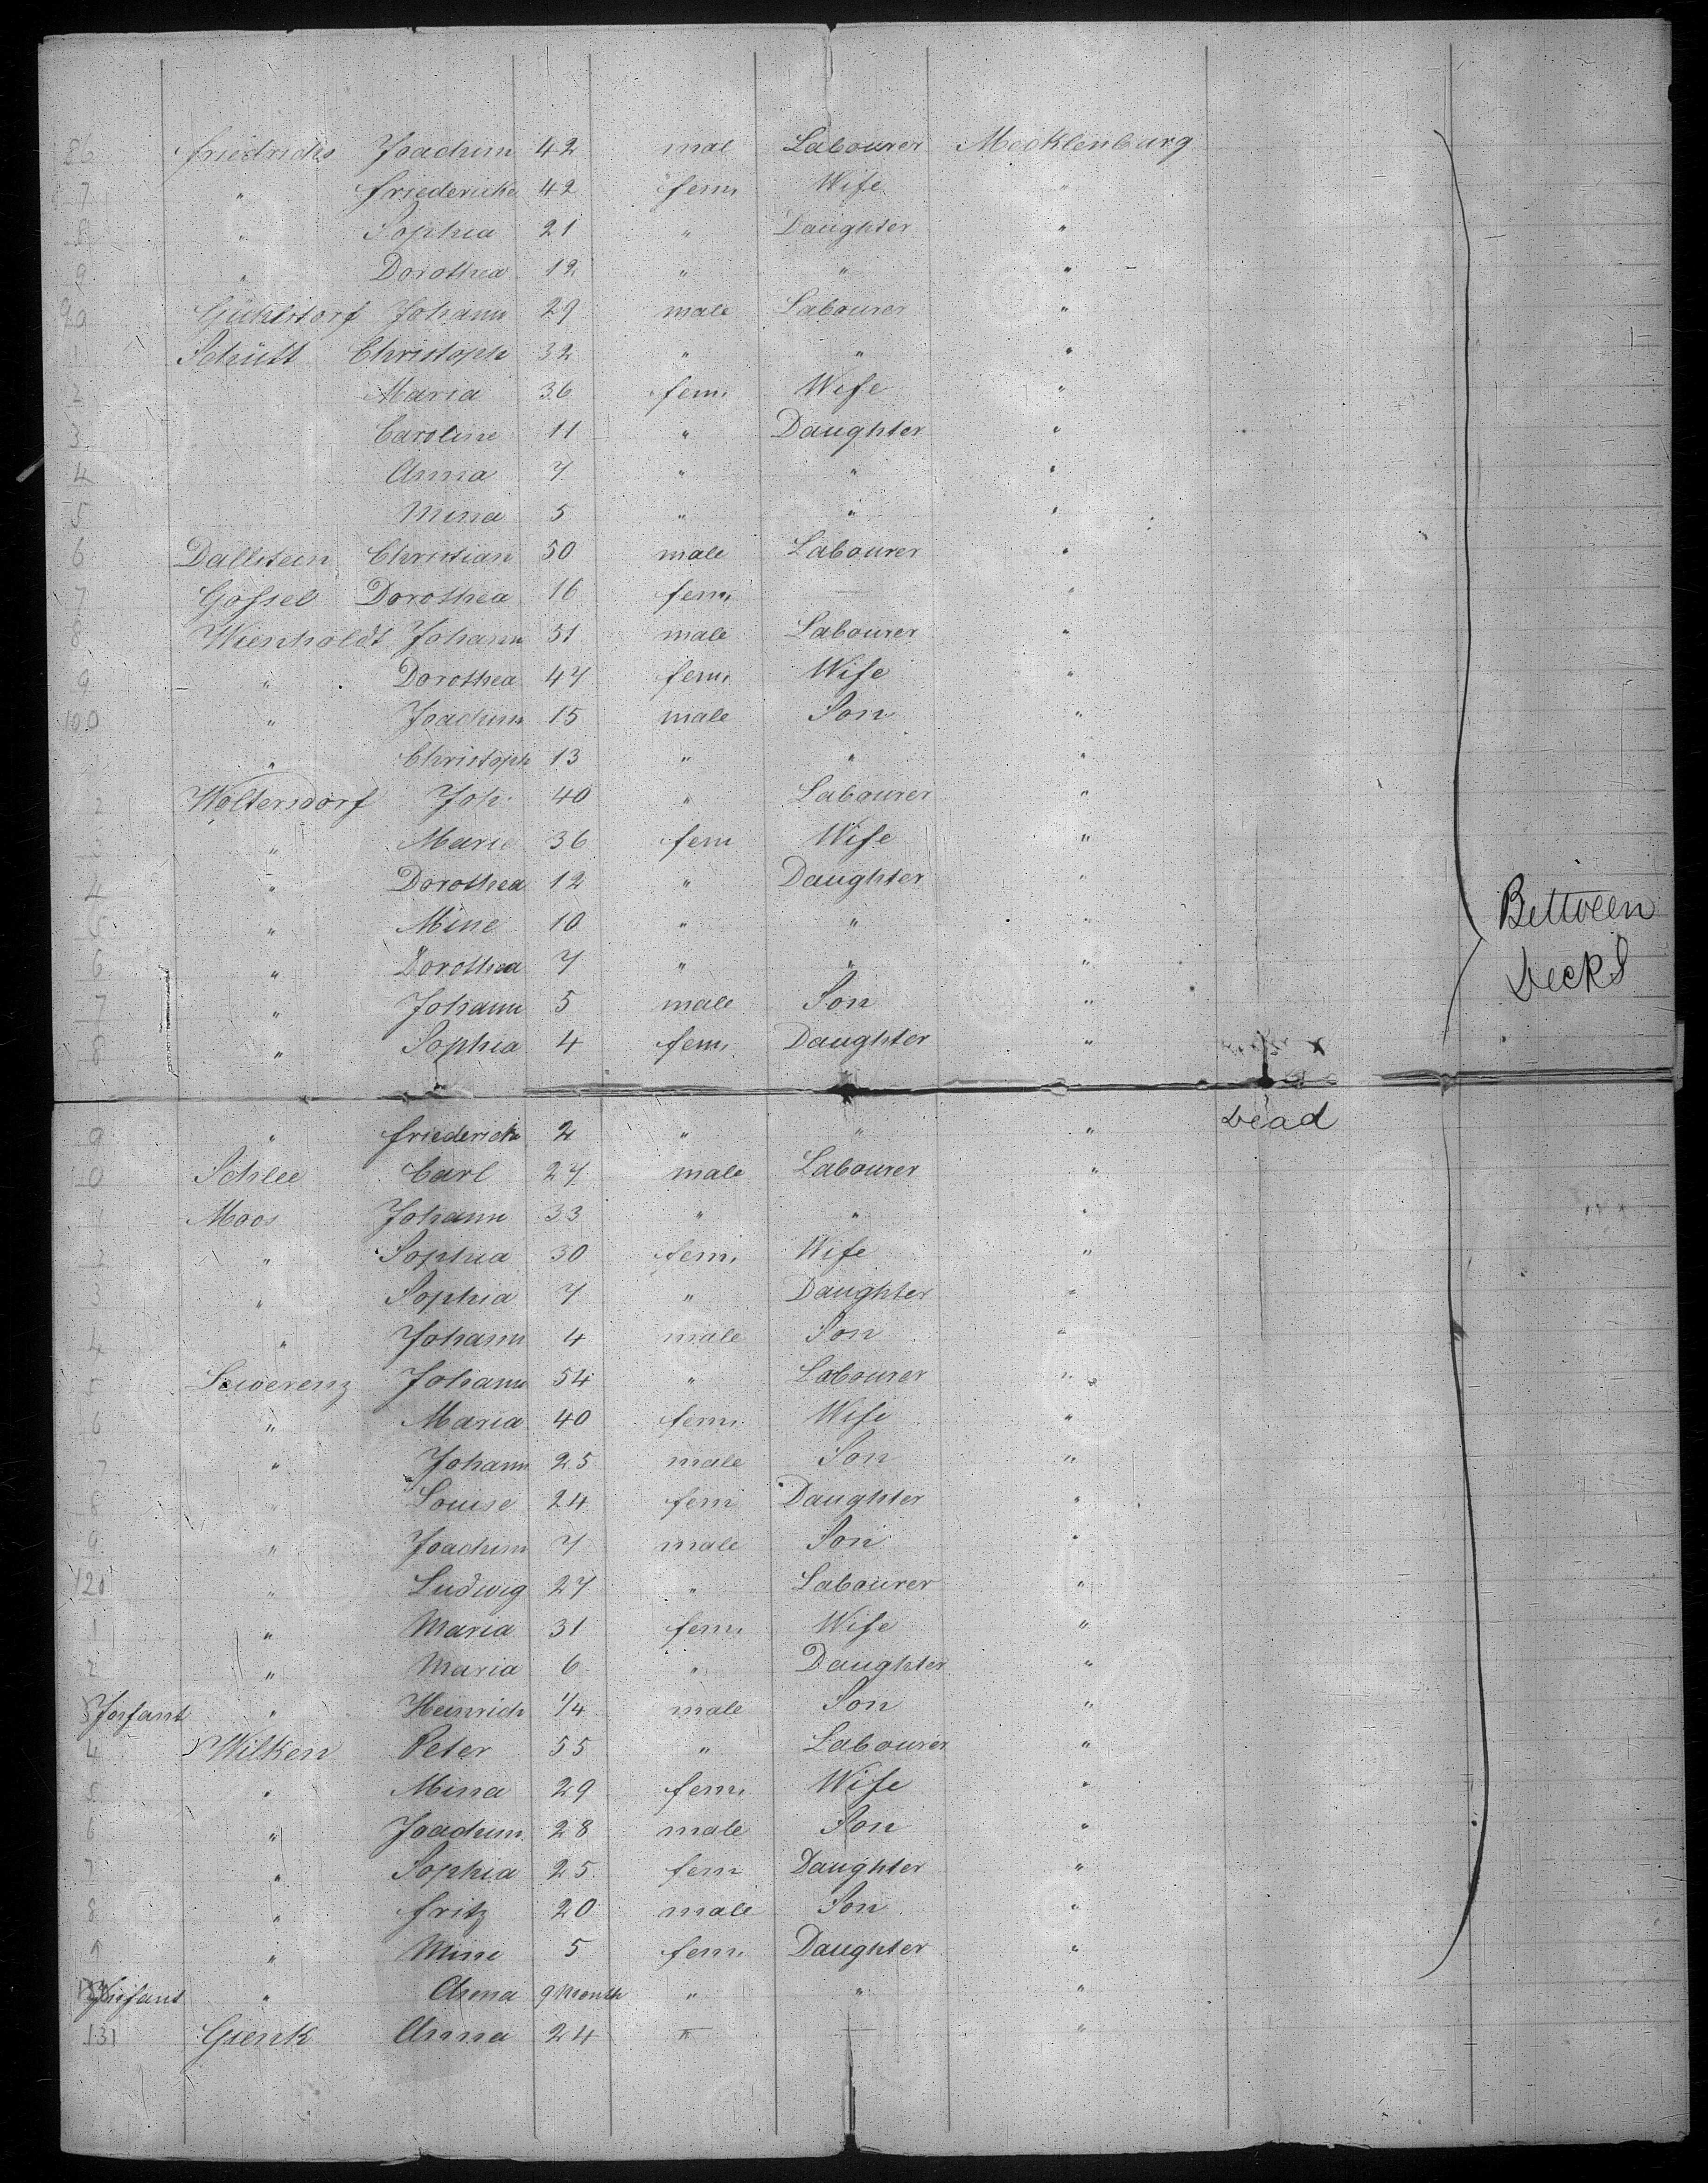 86 Friedrichs Joachim 42 mal Labourer Mecklenburg
7 " Friederike 42 fem. Wife "
8 " Sophia 21 " Daughter "
9 " Dorothea 12 " " "
90 Gühlstorf Johann 29 male Labourer "
1 Schütt Christoph 32 " " "
2 Maria 36 fem. Wife "
3 Caroline 11 " Daughter "
4 Anna 7 " " "
5 Mina 5 " " "
6 Dallstein Christian 50 male Labourer "
7 Gossel Dorothea 16 fem. — "
8 Wienholdt Johann 51 male Labourer "
9 " Dorothea 47 fem. Wife "
100 " Joachim 15 male Son "
" Christoph 13 " " "
2 Woltersdorf Joh. 40 " Labourer "
3 " Marie 36 fem Wife "
4 " Dorothea 12 " Daughter "
5 " Mine 10 " " " Between
6 " Dorothea 7 " " " Decks
7 " Johann 5 male Son "
8 " Sophia 4 fem. Daughter "
9 " Friederike 2 " " " Dead
10 Schlee Carl 27 male Labourer "
1 Moos Johann 33 " " "
2 " Sophia 30 fem. Wife "
3 " Sophia 7 " Daughter "
4 " Johann 4 male Son "
5 Suverenz Johann 54 " Labourer "
6 " Maria 40 fem. Wife "
7 " Johann 25 male Son "
8 " Louise 24 fem Daughter "
9 " Joachim 7 male Son "
120 " Ludwig 27 " Labourer "
1 " Maria 31 fem. Wife "
2 " Maria 6 " Daughter "
Infant " Heinrich 1/4 male Son "
4 Wilken Peter 55 " Labourer "
5 " Mina 29 fem. Wife "
6 " Joachim 28 male Son "
7 " Sophia 25 fem Daughter "
8 " Fritz 20 male Son "
9 " Mine 5 fem. Daughter "
Infant " Anna 9 Month " " "
131 Gienk Anna 24 " — "